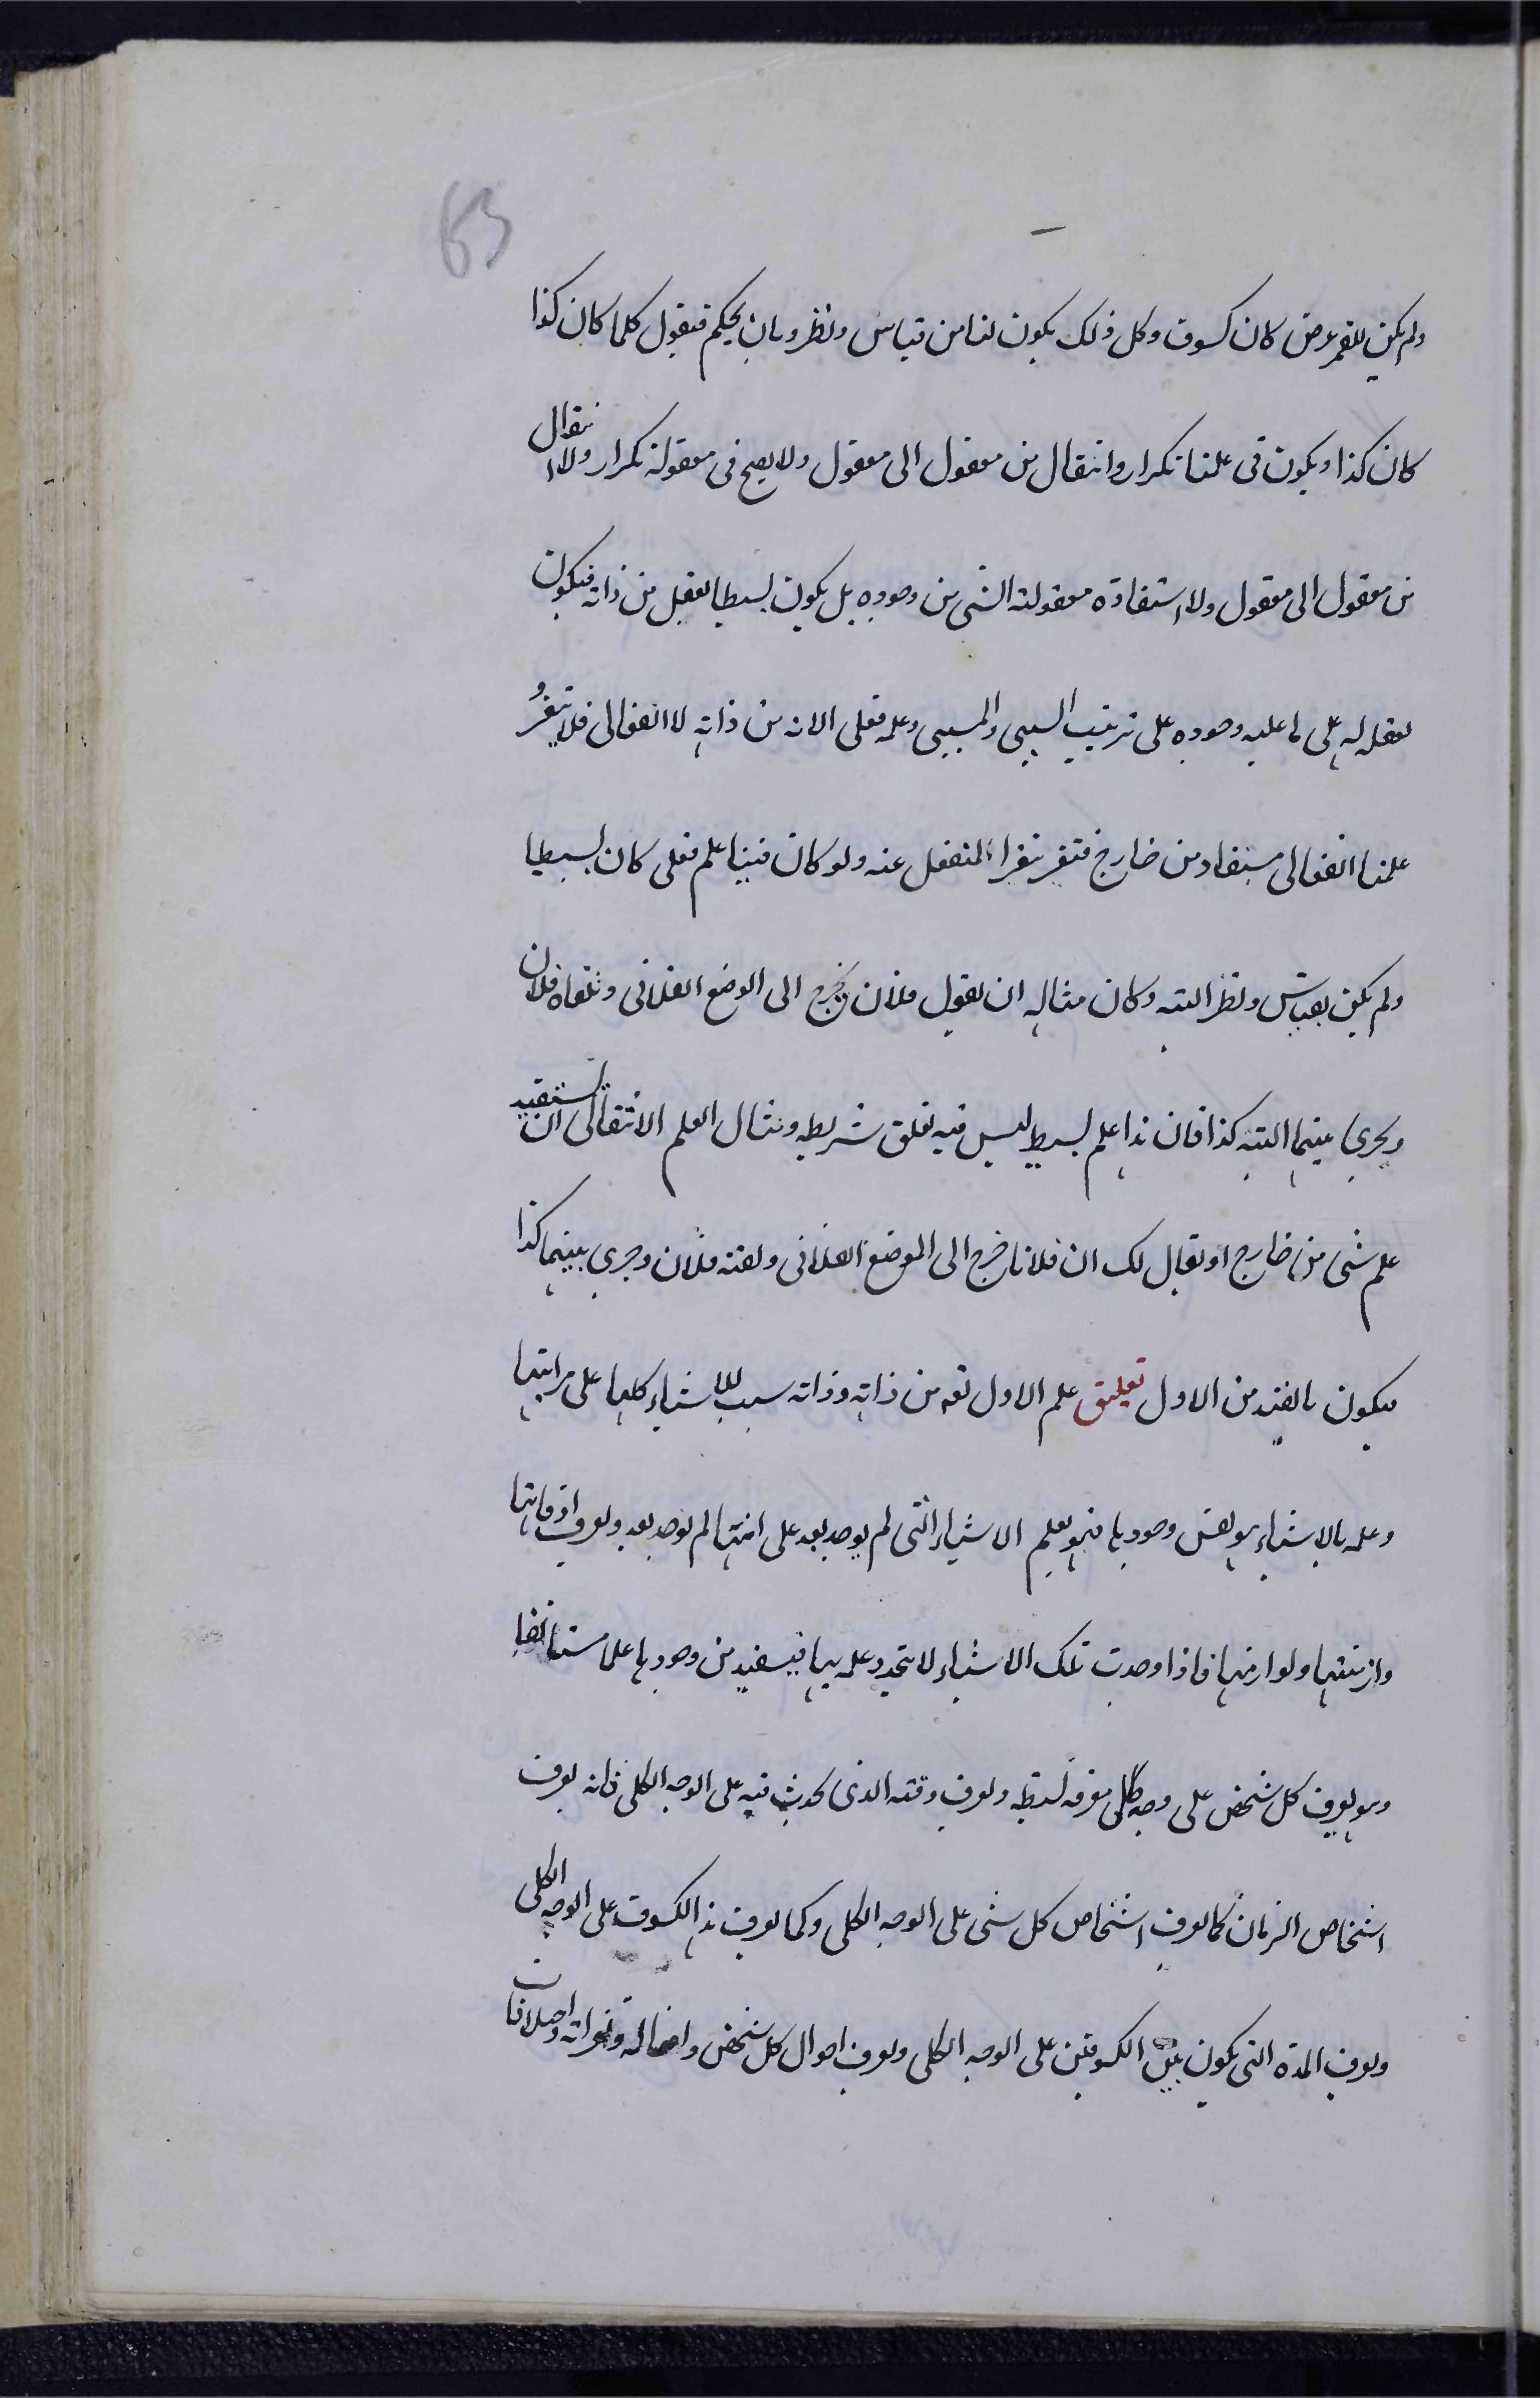 63
ولم يكن للقمر عرض كان كسوف وكل ذلك يكون لنا من قياس ونظر وبان يحكم فيقول كلما كان كذا
كان كذا ويكون فى علمنا تكرار وانتقال من معقول الى معقول ولا يصح فى معقوله تكرار ولا انتقال
من معقول الى معقول ولا استفادة معقولته الشى من وجوده بل يكون بسيطا يعقل من ذاته فيكون
تعقله له على ما عليه وجوده على ترتيب السببى والمسببى وعلمه فعلى الا انه من ذاته لا انفعالى فلا يتغير و
علمنا انفعالى مستفاد من خارج فتغير بتغير المنفعل عنه ولو كان فينا علم فعلى كان بسيطا
ولم يكن بقياس ونظر البته وكان مثاله ان يقول فلان يخرج الى الوضع الفلانى وتلقاه فلان
ويجرى بينهما البته كذا فان هذا علم بسيط ليس فيه تعلق شريطه ومثال العلم الانتقالى ان تستفيد
علم شى من خارج او يقال لك ان فلانا خرج الى الموضع الفلانى ولقيه فلان وجرى بينهما كذا
فيكون بالضد من الاول تعليق علم الاول تعه من ذاته وذاته سبب للاشياء كلها على مراتبها
وعلمه بالاشياء هو نفس وجودها فهو يعلم الاشياء التى لم يوجد بعد على انها لم يوجد بعد ويعرف اوقاتها
وازمنتها ولوازمها فاذا وجدت تلك الاشياء لا يتجدد علمه بها فيستفيد من وجودها علما مستانفا
وهو يعرف كل شخص على وجه كلى معرفة بسيطه ويعرف وقته الذى يحدث فيه على الوجه الكلى فانه يعرف
اشخاص الزمان كما يعرف اشخاص كل شى على الوجه الكلى وكما يعرف هذا الكسوف على الوجه الكلى
ويعرف المدة التى يكون بين الكسوفين على الوجه الكلى ويعرف احوال كل شخص وافعاله وتغيراته واختلافات